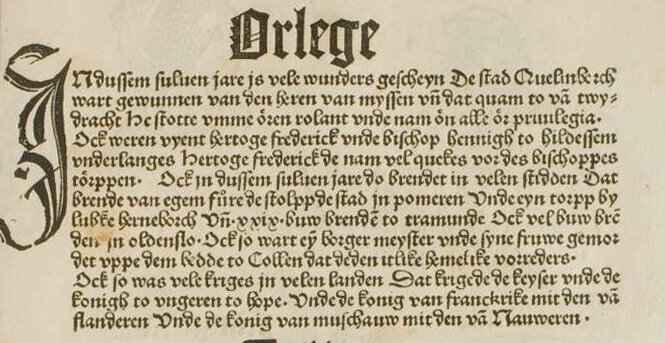 Orlege
INdussem suluen jare is vele wunders gescheyn De stad Quelinborch
wart gewunnen van den heren van myssen vñ dat quam to vā twy⸗
dracht He stotte vmme ören rolant vnde nam ön alle ör priuilegia·
Ock weren vyent hertoge frederick vnde bischop hennigh to hildessem
vnderlanges Hertoge frederick de nam vel quekes vor des bischoppes
törppen· Ock in dussem suluen jare do brendet in velen stidden Dat
brende van egem füre de stolpp de stad in pomeren Vnde eyn torpp by
lubke herneborch Vñ·xxix·buw brendē to tramunde Ock vel buw brē
den in oldenslo·Ock so wart eȳ borger meyster vnde syne fruwe gemor
det vppe dem bedde to Collen dat deden itlike hemelike vorreders·
Ock so was vele kriges in velen landen Dat krigede de keyser vnde de
konigh to vngeren to hope· Vnde de konig van franckrike mit den vā
flanderen Vnde de konig van muschauw mit den vā Nauweren·